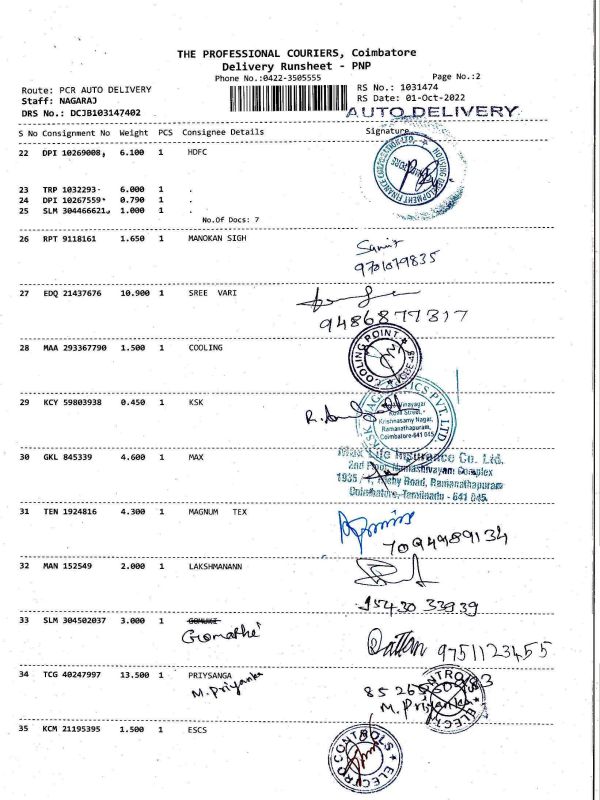 THE PROFESSIONAL COURIERS, Coimbatore
Delivery Runsheet - PNP
Phone No.:0422-3505555 Page No.:2
Route: PCR AUTO DELIVERY RS No.: 1031474
Staff: NAGARAJ RS Date: 01-Oct-2022
DRS No.: DCJB103147402 AUTO DELIVERY
S No Consignment No Weight PCS Consignee Details Signature
22 DPI 10269008 6.100 1 HDFC
HOUSING DEVELOPMENT FINANCE CORPORATION LTD.
23 TRP 1032293 6.000 1 .
24 DPI 10267559 0.790 1 .
25 SLM 304466621 1.000 1 .
No.Of Docs: 7
26 RPT 9118161 1.650 1 MANOKAN SIGH
9701079835
27 EDQ 21437676 10.900 1 SREE VARI
9486877317
28 MAA 293367790 1.500 1 COOLING
COOLING POINT
29 KCY 59803938 0.450 1 KSK
Krishnasamy Nagar,
Ramanathapuram,
Coimbatore-641 045
30 GKL 845339 4.600 1 MAX
Max Life Insurance Co. Ltd.
2nd Floor, Namashivayam Complex
Trichy Road, Ramanathapuram
Coimbatore, Tamilnadu - 641 045.
31 TEN 1924816 4.300 1 MAGNUM TEX
7094989134
32 MAN 152549 2.000 1 LAKSHMANANN
33 SLM 304502037 3.000 1 GOMUKI
Gomathi
9751123455
34 TCG 40247997 13.500 1 PRIYSANGA
M. Priyanka
M. Priyanka
35 KCM 21195395 1.500 1 ESCS
ELECTRO CONTROLS